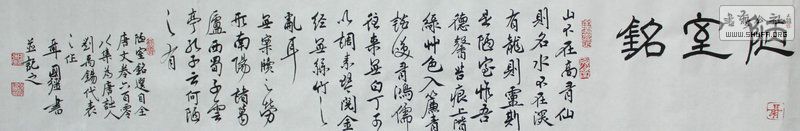 陋室銘
山不在高有仙
則名水不在深
有龍則靈斯
是陋室惟吾
德馨苔痕上階
綠艸色入簾青
談笑有鴻儒
往來無白丁可
以調素琴閱金
經無絲竹之
亂耳
無案牘之勞
形南陽諸葛
廬西蜀子雲
亭孔子云何陋
之有
陋室銘選自全
唐文卷六百零
八集為唐詩人
劉禹錫代表
之作
並記之